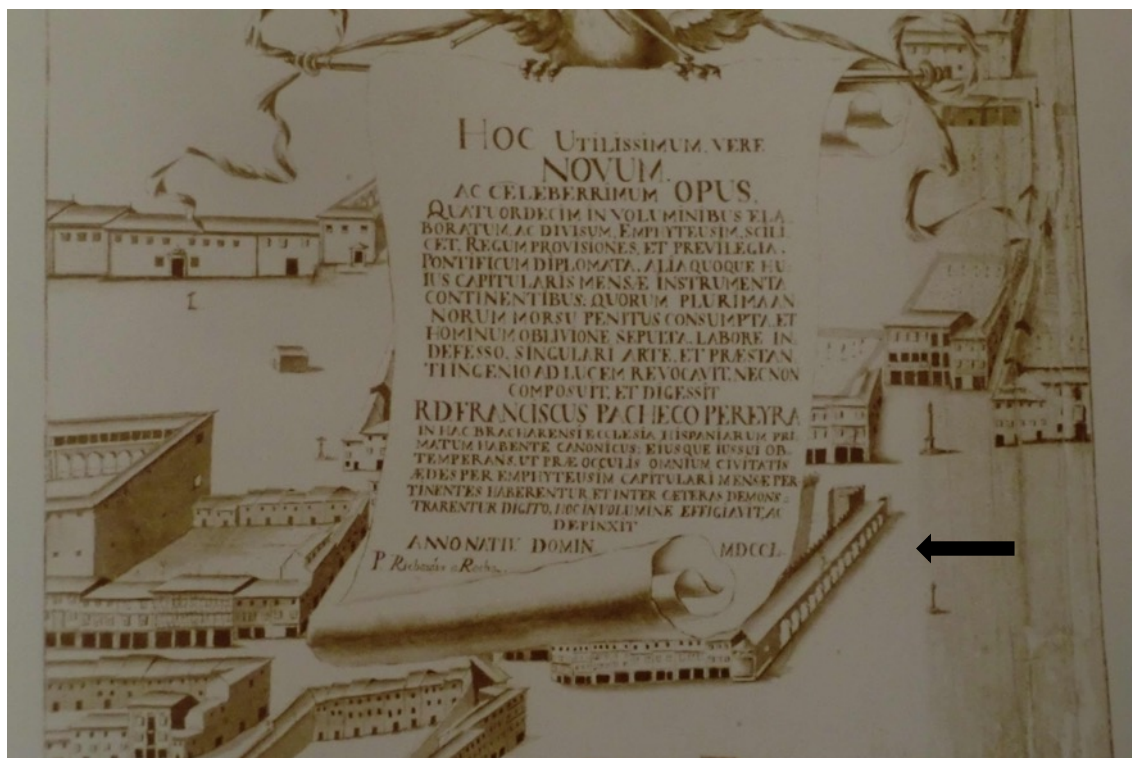 HOC UTILISSIMUM, VERE
NOVUM.
AC CELEBERRIMUM OPUS,
QUATUORDECIM IN VOLUMINIBUS ELA-
BORATUM, AC DIVISUM, EMPHYTEUSIM, SCILI-
CET, REGUM PROVISIONES, ET PREVILEGIA,
PONTIFICUM DIPLOMATA, ALIA QUOQUE HU-
IUS CAPITULARIS MENSÆ INSTRUMENTA
CONTINENTIBUS; QUORUM PLURIMA AN-
NORUM MORSU PENITUS CONSUMPTA, ET
HOMINUM OBLIVIONE SEPULTA, LABORE IN-
DEFESSO, SINGULARI ARTE, ET PRÆSTAN-
TI INGENIO AD LUCEM REVOCAVIT, NECNON
COMPOSUIT, ET DIGESSIT
R.D. FRANCISCUS PACHECO PEREYRA
IN HAC BRACHARENSI ECCLESIA HISPANIARUM PRI-
MATUM HABENTE CANONICUS; EIUSQUE IUSSUI OB-
TEMPERANS, UT PRÆ OCCULIS OMNIUM CIVITATIS
ÆDES PER EMPHYTEUSIM CAPITULARI MENSÆ PER-
TINENTES HABERENTUR, ET INTER CETERAS DEMONS-
TRARENTUR DIGITO, HOC IN VOLUMINE EFFIGIAVIT, AC
DEPINXIT
ANNO NATIV. DOMIN. MDCCL.
P. Richardus a Rocha.